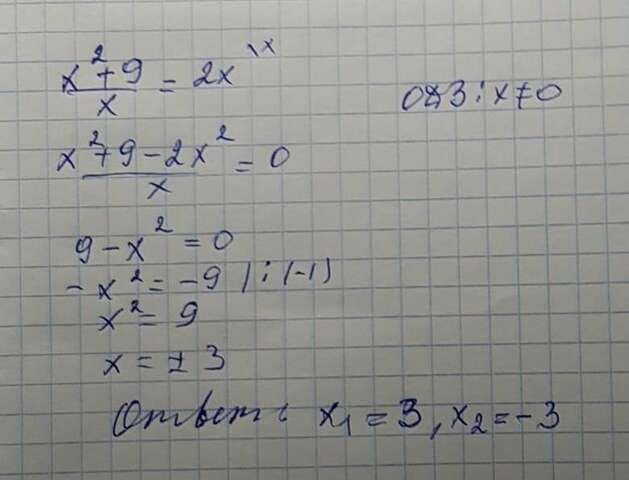 x²+9/x = 2x \x ОДЗ: x≠0
x²+9-2x²/x = 0
9-x² = 0
-x² = -9 | : (-1)
x² = 9
x = ±3
Ответ: x₁ = 3, x₂ = -3